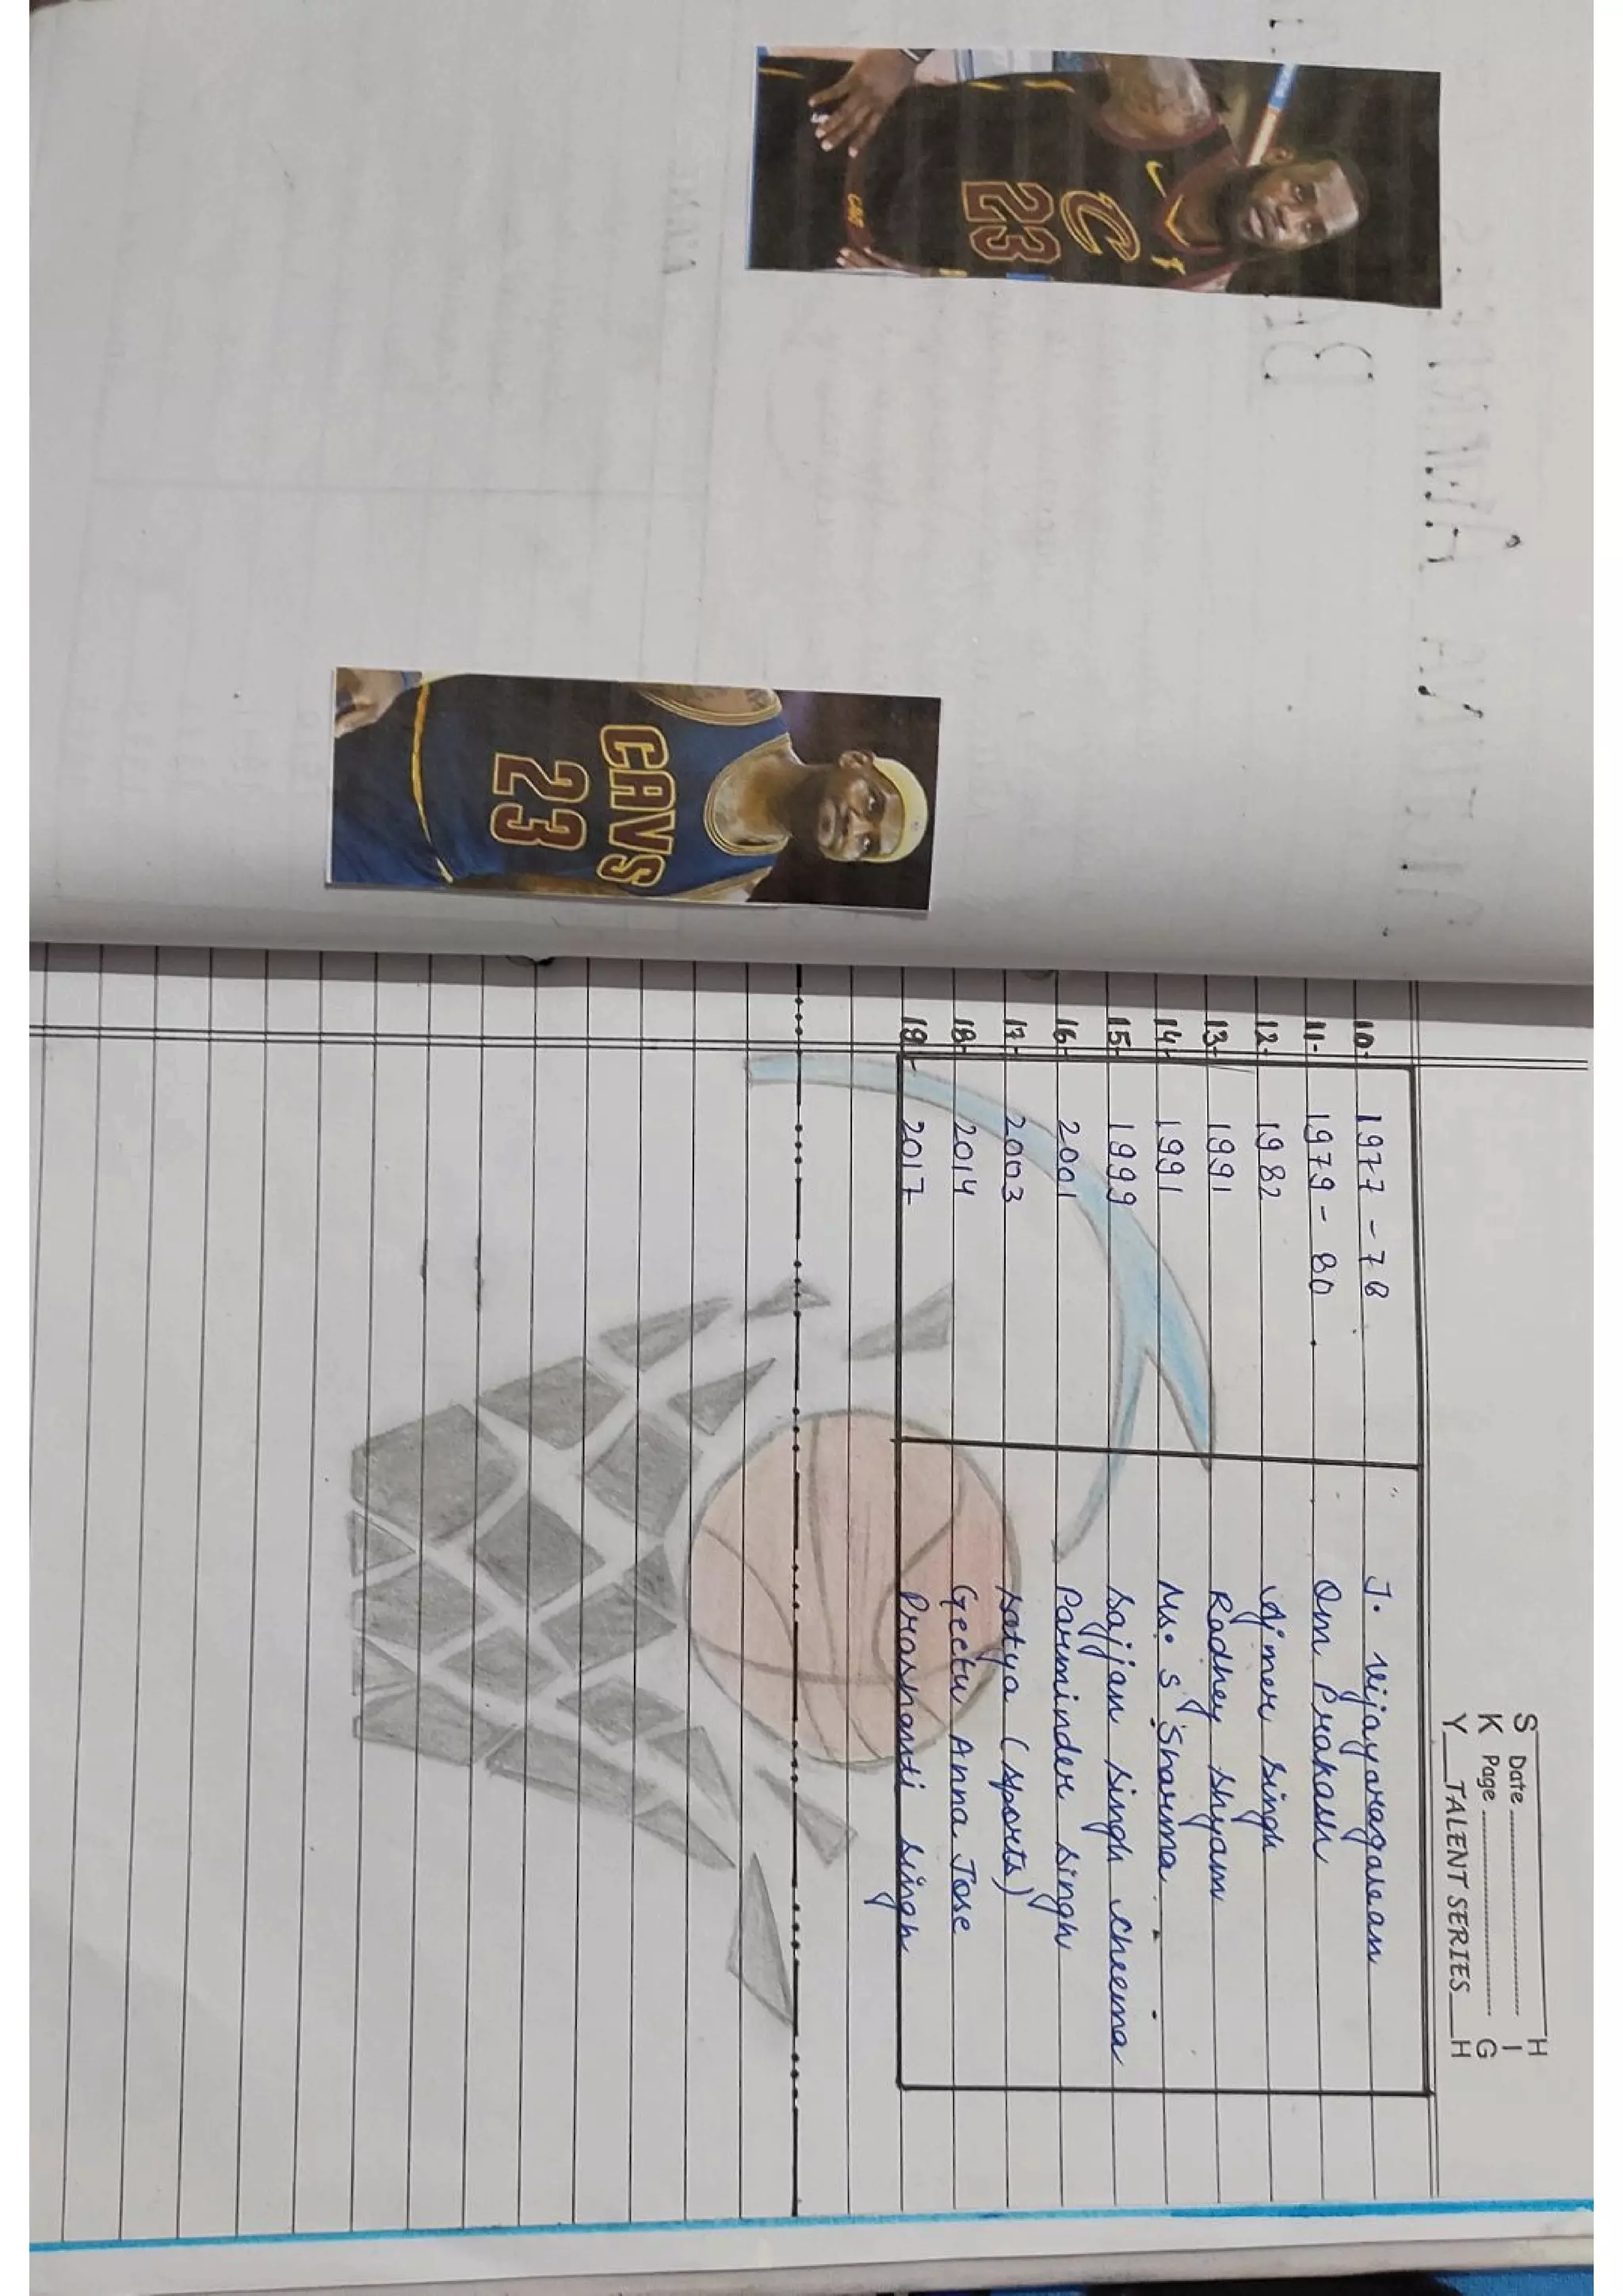 C
23
CAVS
23
S H
Date I
K Page G
Y TALENT SERIES H
10- 1977-78 J. Vijayaragavan
11- 1979-80 Om Prakash
12- 1982 Ajmer Singh
13- 1991 Radhey Shyam
14- 1991 Ms. S Sharma
15- 1999 Sajjan Singh Cheema
16- 2001 Parminder Singh
17- 2003 Satya (Sports)
18- 2014 Geetu Anna Jose
19- 2017 Prashanti Singh